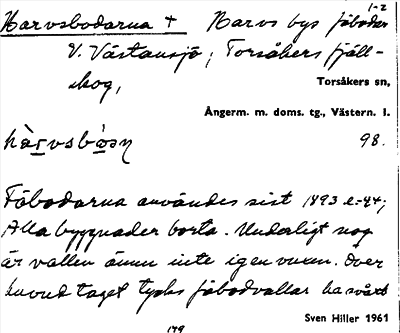 1-2
Harvsbodarna + Harvs bys fäbodar
V. Västansjö; Torsåkers fjäll-
skog,
Torsåkers sn,
Ångerm. m. doms. tg., Västern. l.
98.
Fäbodarna användes sist 1893 e.-94;
Alla byggnader borta. Underligt nog
är vallen ännu inte igenvuxen. Över
huvud taget tycks fäbodvallar ha svårt
Sven Hiller 1961
149